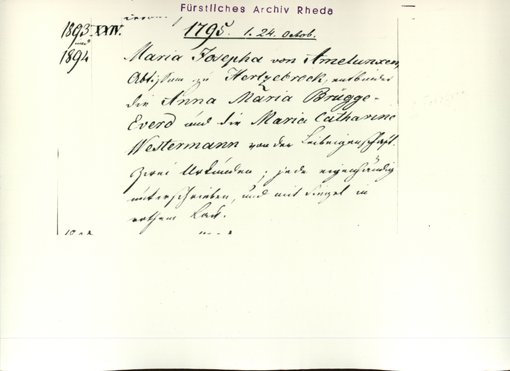 Fürstliches Archiv Rheda
1893 XXIV. 1795. 1. 24. Octob.
und
1894 Maria Josepha von Amelunxen,
Äbtissin zu Hertzebrock, entbindet
die Anna Maria Brügge-
Everd und die Maria Catharine
Westermann von der Leibeigenschaft.
Zwei Urkunden; jede eigenhändig
unterschrieben, und mit Siegel in
rothem Lack.